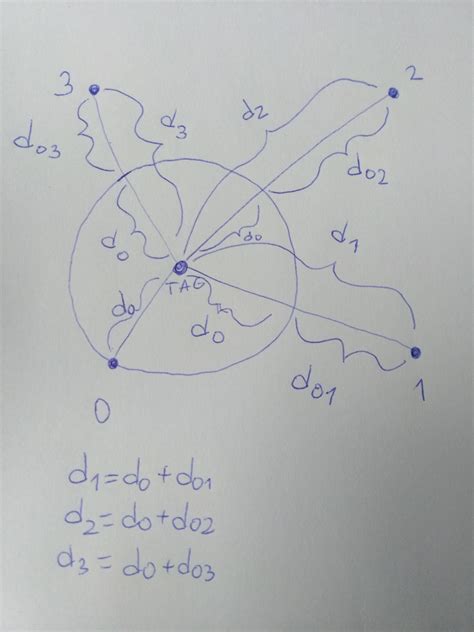 3
2
d2
d3
d03
d02
d0
d0
d1
d0
TAG
d0
d01
1
0
d1=d0+d01
d2=d0+d02
d3=d0+d03